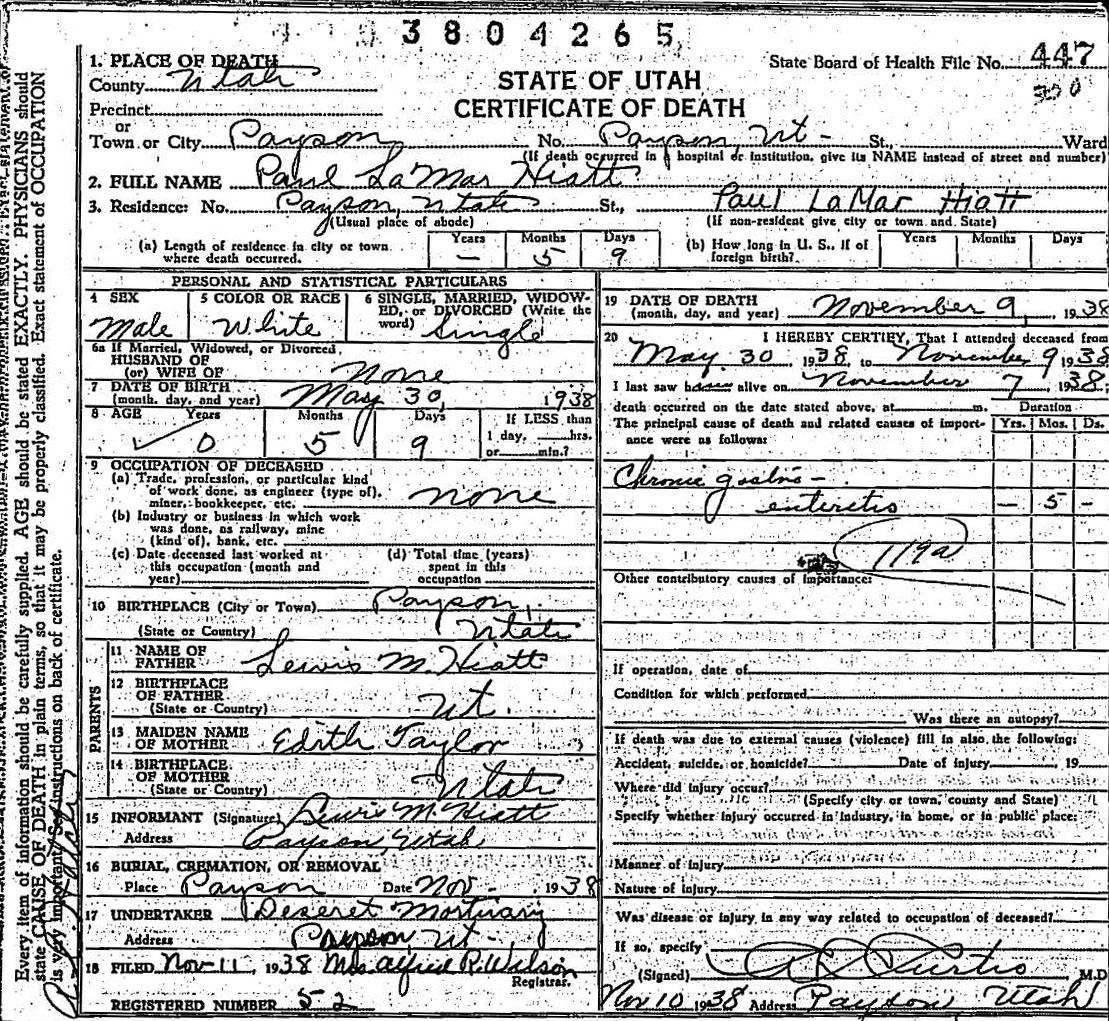 3804265
1. PLACE OF DEATH
County Utah
State Board of Health File No. 447
STATE OF UTAH
CERTIFICATE OF DEATH
Precinct
or
Town or City Payson No. Payson, Ut - St., Ward
(If death occurred in a hospital or institution, give its NAME instead of street and number)
2. FULL NAME Paul LaMar Hiatt
3. Residence: No. Payson, Utah St., Paul LaMar Hiatt
(Usual place of abode) (If non-resident give city or town and State)
(a) Length of residence in city or town where death occurred. Years - Months 5 Days 9
(b) How long in U. S., if of foreign birth? Years Months Days
PERSONAL AND STATISTICAL PARTICULARS
4 SEX Male
5 COLOR OR RACE White
6 SINGLE, MARRIED, WIDOWED, OR DIVORCED (Write the word) Single
6a If Married, Widowed, or Divorced,
HUSBAND OF
(or) WIFE OF None
7 DATE OF BIRTH
(month, day, and year) May 30, 1938
8 AGE Years 0 Months 5 Days 9 If LESS than
1 day, hrs.
or min.?
9 OCCUPATION OF DECEASED
(a) Trade, profession, or particular kind
of work done, as engineer (type of),
miner, bookkeeper, etc. none
(b) Industry or business in which work
was done, as railway, mine
(kind of), bank, etc.
(c) Date deceased last worked at
this occupation (month and
year)
(d) Total time (years)
spent in this
occupation
10 BIRTHPLACE (City or Town) Payson,
(State or Country) Utah
PARENTS
11 NAME OF
FATHER Lewis M. Hiatt
12 BIRTHPLACE
OF FATHER
(State or Country) Ut.
13 MAIDEN NAME
OF MOTHER Edith Taylor
14 BIRTHPLACE
OF MOTHER
(State or Country) Utah
15 INFORMANT (Signature) Lewis M. Hiatt
Address Payson, Utah
16 BURIAL, CREMATION, OR REMOVAL
Place Payson Date Nov - 1938
17 UNDERTAKER Deseret Mortuary
Address Payson, Ut -
18 FILED Nov-11, 1938 Mrs Alfred R. Wilson
Registrar.
REGISTERED NUMBER 52
19 DATE OF DEATH
(month, day, and year) November 9, 1938
20 I HEREBY CERTIFY, That I attended deceased from
May 30 1938 to November 9 1938
I last saw h alive on November 7 1938,
death occurred on the date stated above, at m.
Duration
The principal cause of death and related causes of importance were as follows: Yrs. Mos. Ds.
Chronic gastro-
enteretis - 5 -
119a
Other contributory causes of importance:
If operation, date of
Condition for which performed
Was there an autopsy?
If death was due to external causes (violence) fill in also the following:
Accident, suicide, or homicide? Date of injury , 19
Where did injury occur?
(Specify city or town, county and State)
Specify whether injury occurred in industry, in home, or in public place:
Manner of injury
Nature of injury
Was disease or injury in any way related to occupation of deceased?
If so, specify
(Signed) Curtis M.D
Nov 10 1938 Address Payson, Utah
Every item of information should be carefully supplied. AGE should be stated EXACTLY. PHYSICIANS should
state CAUSE OF DEATH in plain terms, so that it may be properly classified. Exact statement of OCCUPATION
is very important. See instructions on back of certificate.